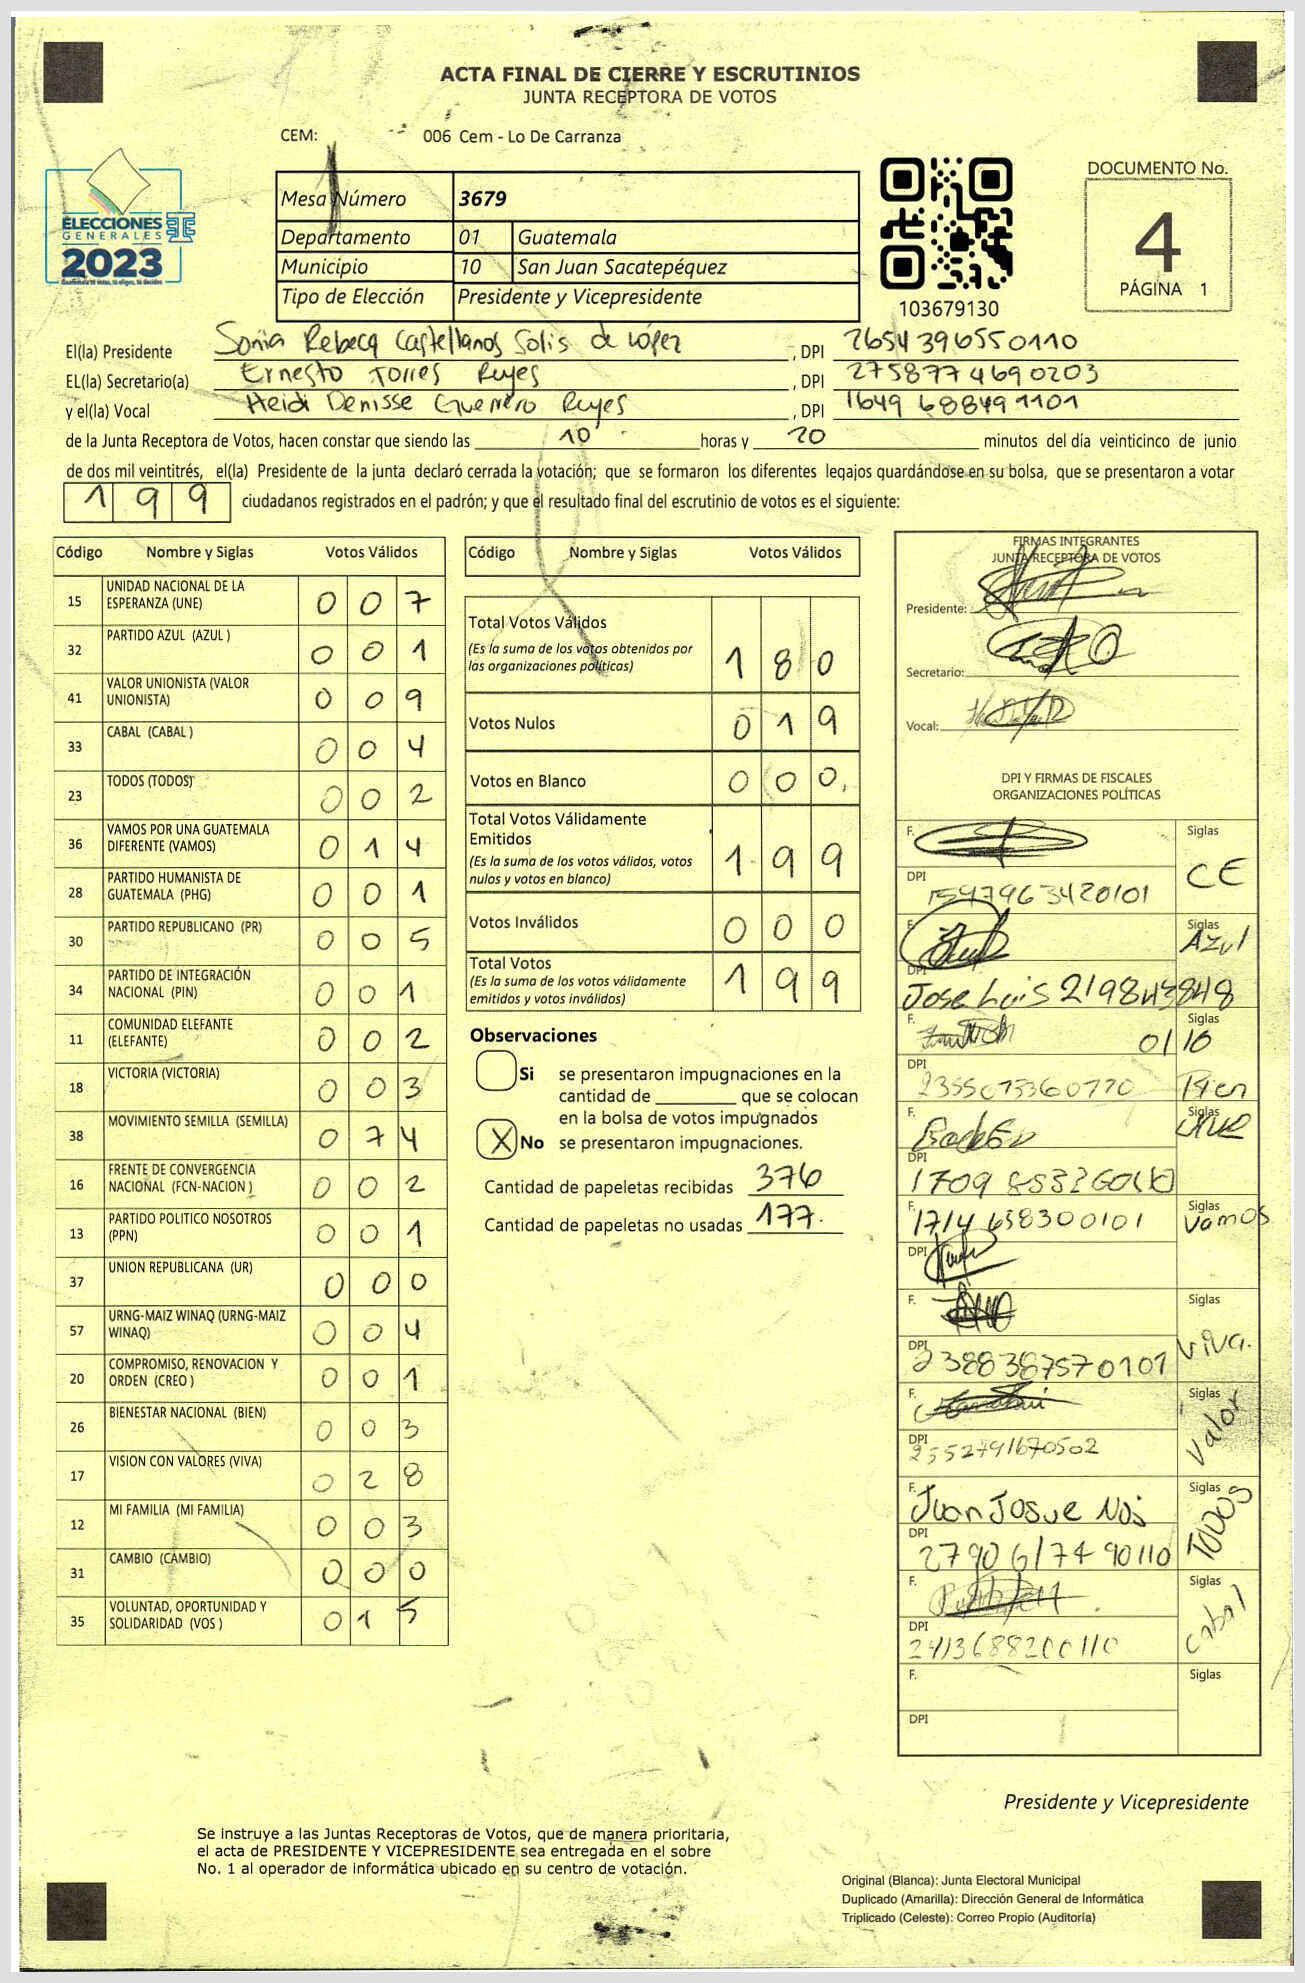 ACTA FINAL DE CIERRE Y ESCRUTINIOS
JUNTA RECEPTORA DE VOTOS
CEM: 006 Cem - Lo De Carranza
ELECCIONES
GENERALES
2023
Mesa Número 3679
Departamento 01 Guatemala
Municipio 10 San Juan Sacatepéquez
Tipo de Elección Presidente y Vicepresidente
103679130
DOCUMENTO No.
4
PÁGINA 1
El(la) Presidente Sonia Rebeca Castellanos Solis de López, DPI 2654396550110
EL(la) Secretario(a) Ernesto Torres Reyes, DPI 2758774690203
y el(la) Vocal Heidi Denisse Guerrero Reyes, DPI 1649 688491101
de la Junta Receptora de Votos, hacen constar que siendo las 10 horas y 20 minutos del día veinticinco de junio
de dos mil veintitrés, el(la) Presidente de la junta declaró cerrada la votación; que se formaron los diferentes legajos quardándose en su bolsa, que se presentaron a votar
199 ciudadanos registrados en el padrón; y que el resultado final del escrutinio de votos es el siguiente:
Código Nombre y Siglas Votos Válidos
15 UNIDAD NACIONAL DE LA ESPERANZA (UNE) 0 0 7
32 PARTIDO AZUL (AZUL ) 0 0 1
41 VALOR UNIONISTA (VALOR UNIONISTA) 0 0 9
33 CABAL (CABAL ) 0 0 4
23 TODOS (TODOS) 0 0 2
36 VAMOS POR UNA GUATEMALA DIFERENTE (VAMOS) 0 1 4
28 PARTIDO HUMANISTA DE GUATEMALA (PHG) 0 0 1
30 PARTIDO REPUBLICANO (PR) 0 0 5
34 PARTIDO DE INTEGRACIÓN NACIONAL (PIN) 0 0 1
11 COMUNIDAD ELEFANTE (ELEFANTE) 0 0 2
18 VICTORIA (VICTORIA) 0 0 3
38 MOVIMIENTO SEMILLA (SEMILLA) 0 7 4
16 FRENTE DE CONVERGENCIA NACIONAL (FCN-NACION ) 0 0 2
13 PARTIDO POLITICO NOSOTROS (PPN) 0 0 1
37 UNION REPUBLICANA (UR) 0 0 0
57 URNG-MAIZ WINAQ (URNG-MAIZ WINAQ) 0 0 4
20 COMPROMISO, RENOVACION Y ORDEN (CREO ) 0 0 1
26 BIENESTAR NACIONAL (BIEN) 0 0 3
17 VISION CON VALORES (VIVA) 0 2 8
12 MI FAMILIA (MI FAMILIA) 0 0 3
31 CAMBIO (CAMBIO) 0 0 0
35 VOLUNTAD, OPORTUNIDAD Y SOLIDARIDAD (VOS ) 0 1 5
Código Nombre y Siglas Votos Válidos
Total Votos Válidos
(Es la suma de los votos obtenidos por las organizaciones políticas) 1 8 0
Votos Nulos 0 1 9
Votos en Blanco 0 0 0
Total Votos Válidamente Emitidos
(Es la suma de los votos válidos, votos nulos y votos en blanco) 1 9 9
Votos Inválidos 0 0 0
Total Votos
(Es la suma de los votos válidamente emitidos y votos inválidos) 1 9 9
Observaciones
Si se presentaron impugnaciones en la
cantidad de ________ que se colocan
en la bolsa de votos impugnados
X No se presentaron impugnaciones.
Cantidad de papeletas recibidas 376
Cantidad de papeletas no usadas 177.
FIRMAS INTEGRANTES
JUNTA RECEPTORA DE VOTOS
Presidente:
Secretario:
Vocal:
DPI Y FIRMAS DE FISCALES
ORGANIZACIONES POLÍTICAS
F. Siglas CE
DPI 1597963420101
F. Siglas Azul
DPI Jose Luis 219843848
F. Siglas 0110
DPI 2355073360770 Bien
F. Siglas UNE
DPI 1709
F. 1714 658300101 Siglas Vamos
DPI
F. Siglas Viva.
DPI 2388387570101
F. Siglas Valor
DPI 2352791670502
F. Juan Josue Siglas TODOS
DPI 27906174 90110
F. Siglas Cabal
DPI 2413688200110
F. Siglas
DPI
Presidente y Vicepresidente
Se instruye a las Juntas Receptoras de Votos, que de manera prioritaria,
el acta de PRESIDENTE Y VICEPRESIDENTE sea entregada en el sobre
No. 1 al operador de informática ubicado en su centro de votación.
Original (Blanca): Junta Electoral Municipal
Duplicado (Amarilla): Dirección General de Informática
Triplicado (Celeste): Correo Propio (Auditoría)